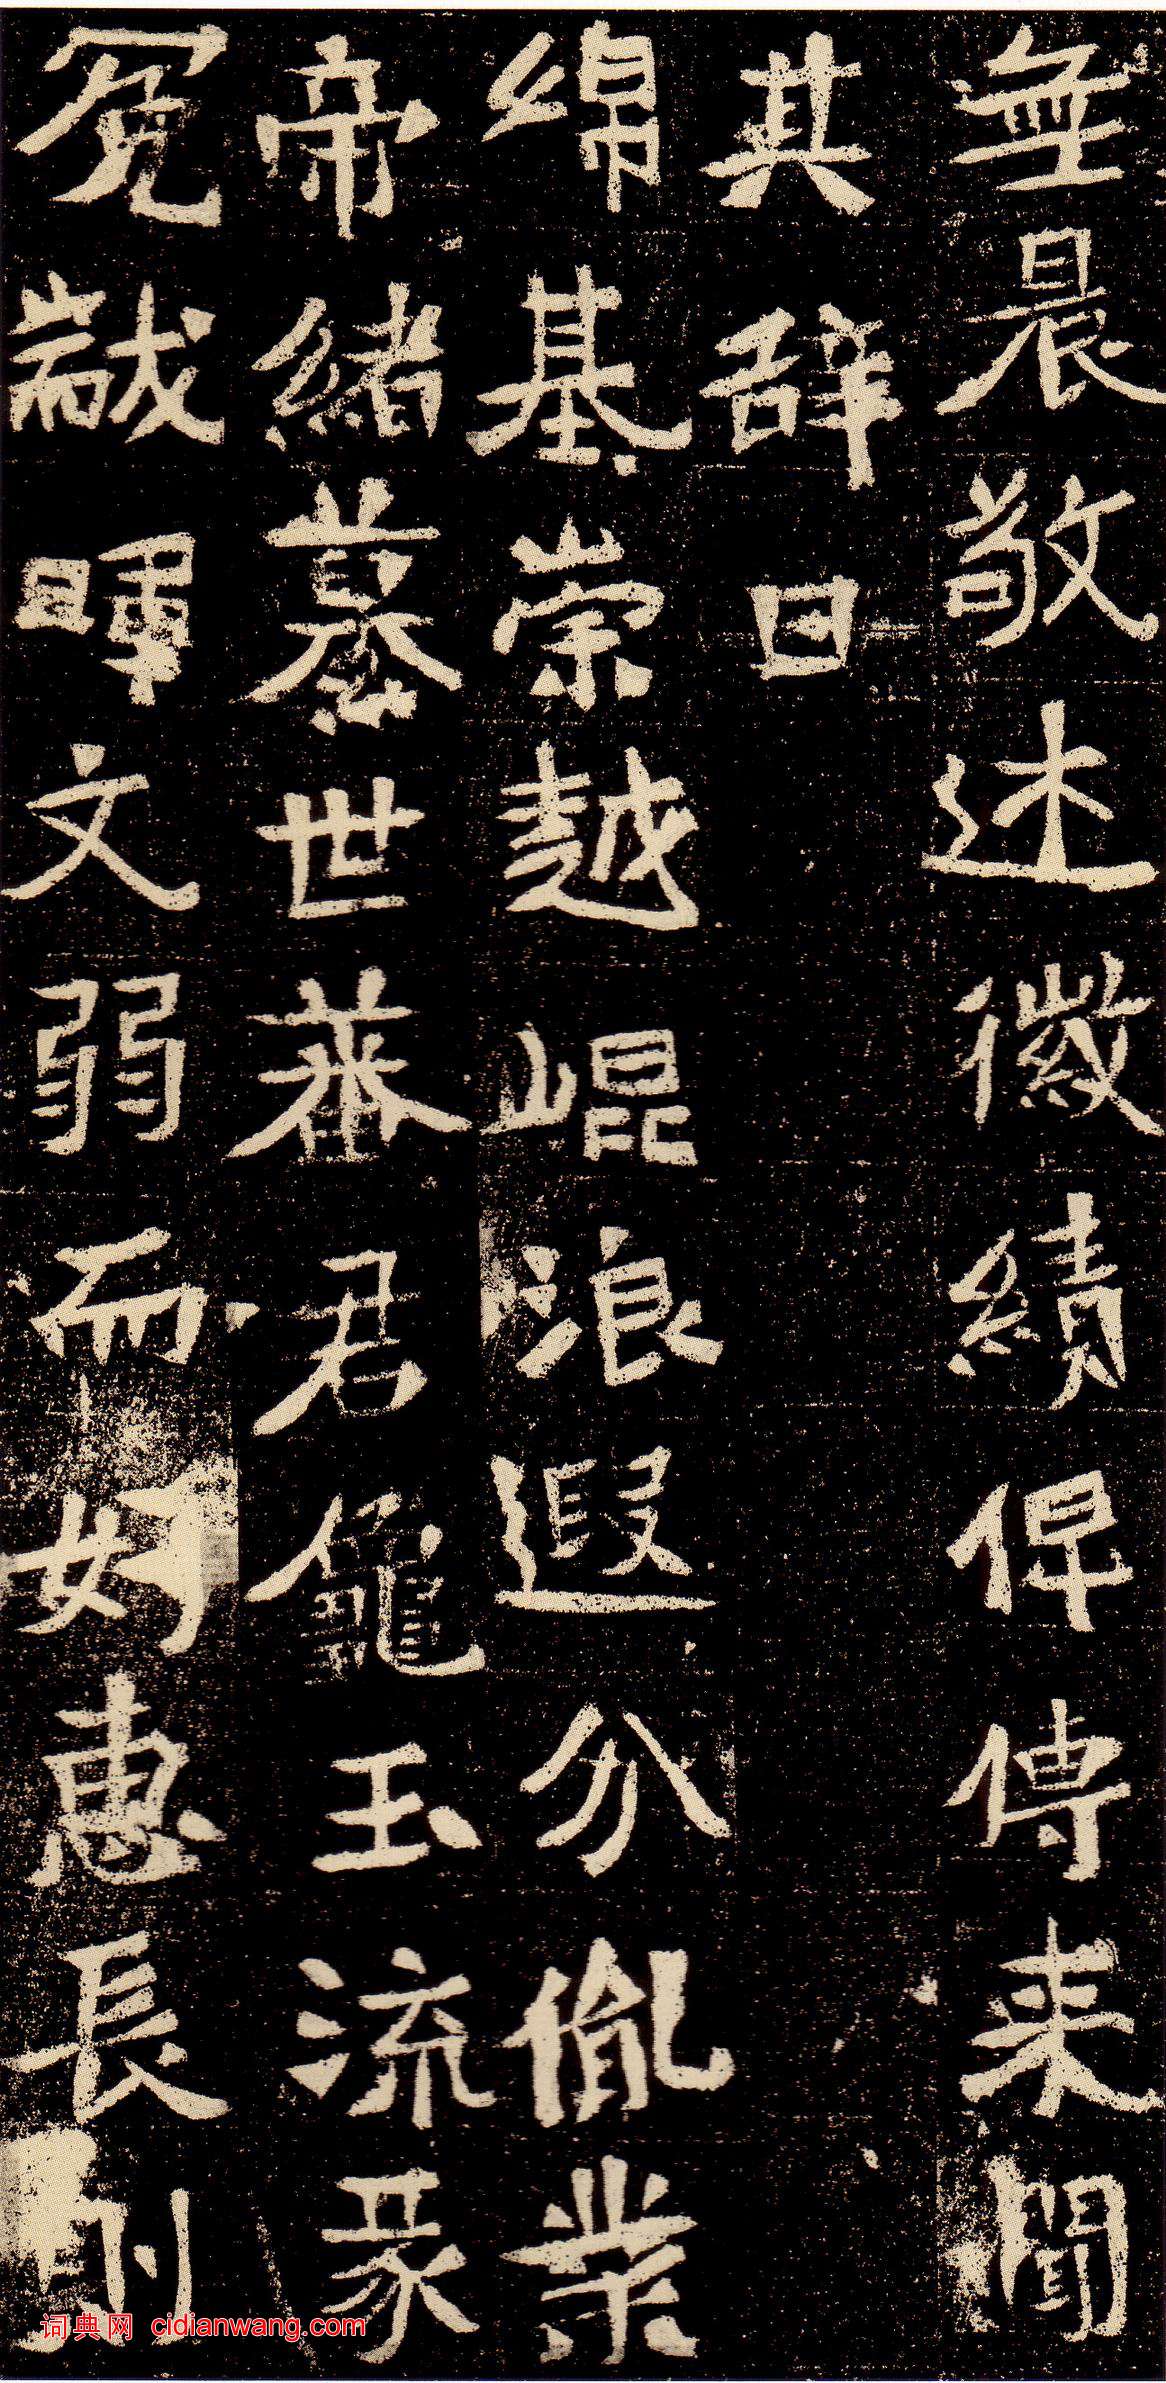 無晨敬述徽績俾傳来聞
其辞曰
綿基崇越崐浪遐分胤業
帝緒慕世蕃君龜玉流彖
冕黻暉文弱而好惠長則
词典网 cidianwang.com